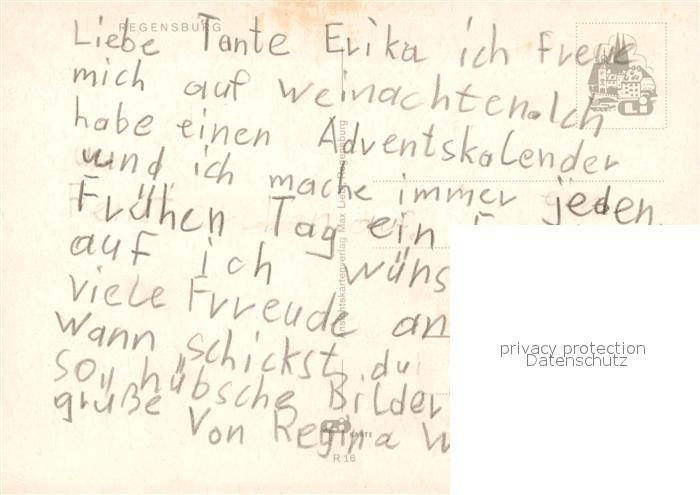 REGENSBURG
Liebe Tante Erika ich Freue
mich auf weinachten. Ich
habe einen Adventskalender
und ich mache immer jeden
Frühen Tag ein
auf ich wüns
viele Frreude an
wann schickst du
so hübsche Bilder
grüße Von Regina W
Ansichtskartenverlag Max Liebl Regensburg
Li KARTE
R 16
Li
privacy protection
Datenschutz